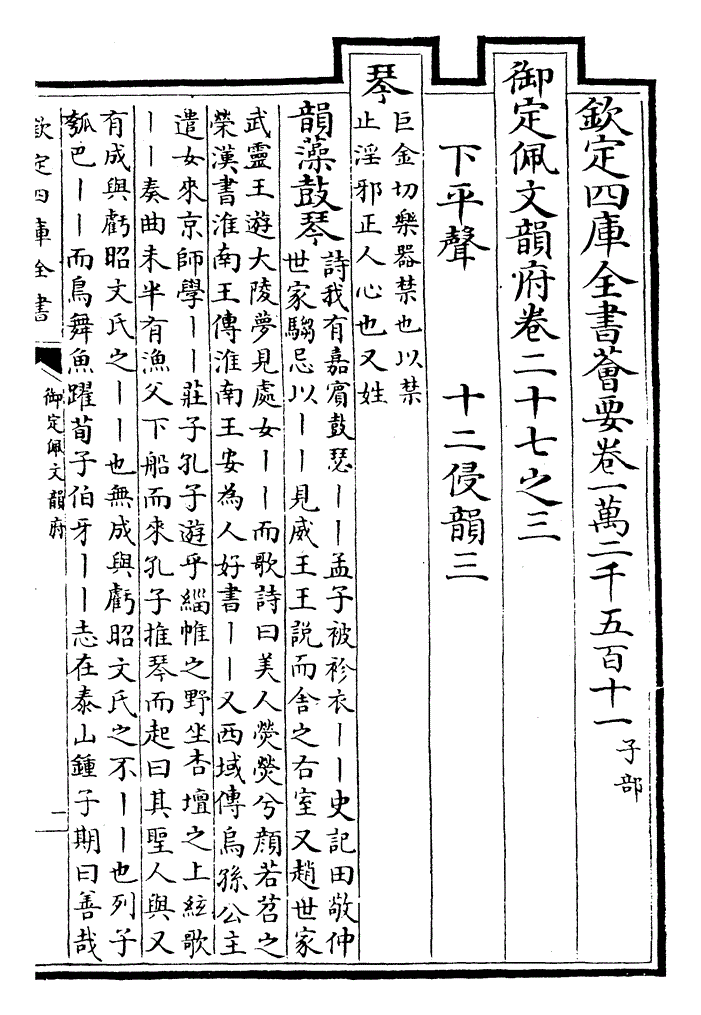 欽定四庫全書薈要卷一萬二千五百十一 子部
御定佩文韻府卷二十七之三
下平聲 十二侵韻三
琴
巨金切樂器禁也以禁
止淫邪正人心也又姓
韻藻鼓琴
詩我有嘉賓鼓瑟丨丨孟子被袗衣丨丨史記田敬仲
世家騶忌以丨丨見威王王説而舍之右室又趙世家
武靈王遊大陵夢見處女丨丨而歌詩曰美人熒熒兮顔若苕之
榮漢書淮南王傳淮南王安為人好書丨丨又西域傳烏孫公主
遣女來京師學丨丨莊子孔子遊乎緇帷之野坐杏壇之上絃歌
丨丨奏曲未半有漁父下船而來孔子推琴而起曰其聖人與又
有成與虧昭文氏之丨丨也無成與虧昭文氏之不丨丨也列子
瓠巴丨丨而鳥舞魚躍荀子伯牙丨丨志在泰山鍾子期曰善哉
欽定四庫全書
御定佩文韻府
二